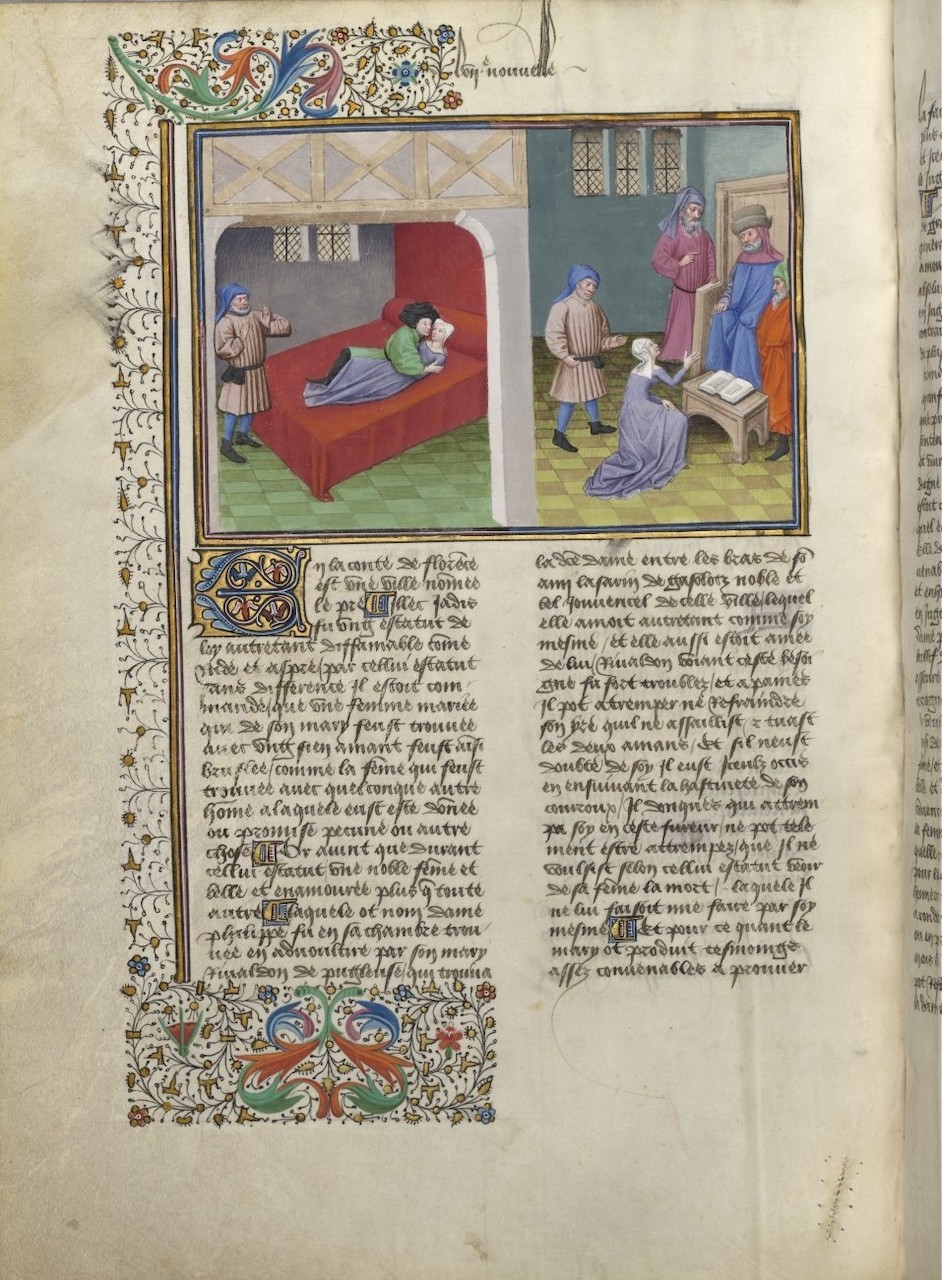 vij.e nouuelle
En la conte de florēce
est vne ville nōmee
le pre Illec Jadis
fu vng estatut de
loy autretant diffamable cōme
Rude et aspre / par cellui estatut
sans difference Il estoit com
mande / que vne femme mariee
qui de son mary feust trouuee
auec vng sien amant feust aīsi
bruslee / comme la fēme qui feust
trouuee auec quelconque autre
hōme a laquele eust este dōnee
ou promise pecune ou autre
chose Or auint que durant
cellui estatut vne noble fēme et
belle et enamouree plus q̄ toute
autre laquele ot nom dame
phelippe fu en sa chambre trou
uee en adnoultire par son mary
Rinaldon de pugliense qui trouua
la dc̄e dame entre les bras de sō
ami lasarin de gasolotz noble et
bel Jouuencel de celle ville / lequel
elle amoit autretant comme soy
mesme / et elle aussi estoit amee
de lui / Rinaldon voiant ceste besoi
gne fu fort troublez / et a paines
Il pot attremper ne Refraindre
son yre quil ne assaillist / ⁊ tuast
les deux amans / Et sil neust
doubte de soy Il eust Iceulz occis
en ensuiuant la hastiuete de son
courroux / Il donques qui attrem
pa soy en ceste fureur / ne pot tele
ment estre attrempez / que Il ne
voulsist selon cellui estatut veoir
de sa fēme la mort / laquele Il
ne lui faisoit mie faire par soy
mesme Et pour ce quant le
mary ot produit tesmoings
assez conuenables a prouuer